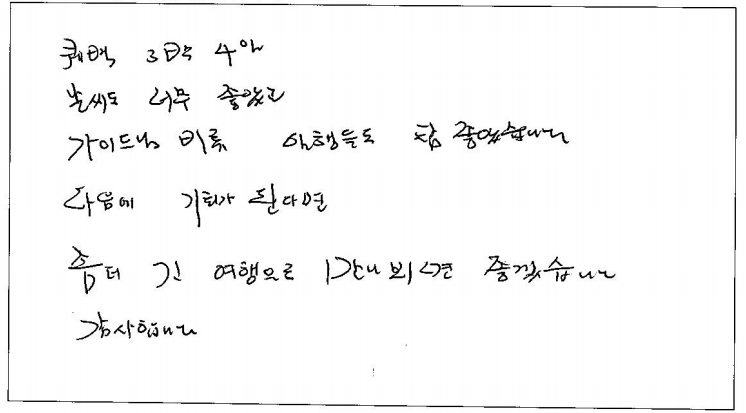 퀘백 3박 4일
날씨도 너무 좋았고
가이드님 비롯 일행들도 참 좋았습니다
다음에 기회가 된다면
좀 더 긴 여행으로 좋겠습니다
감사합니다